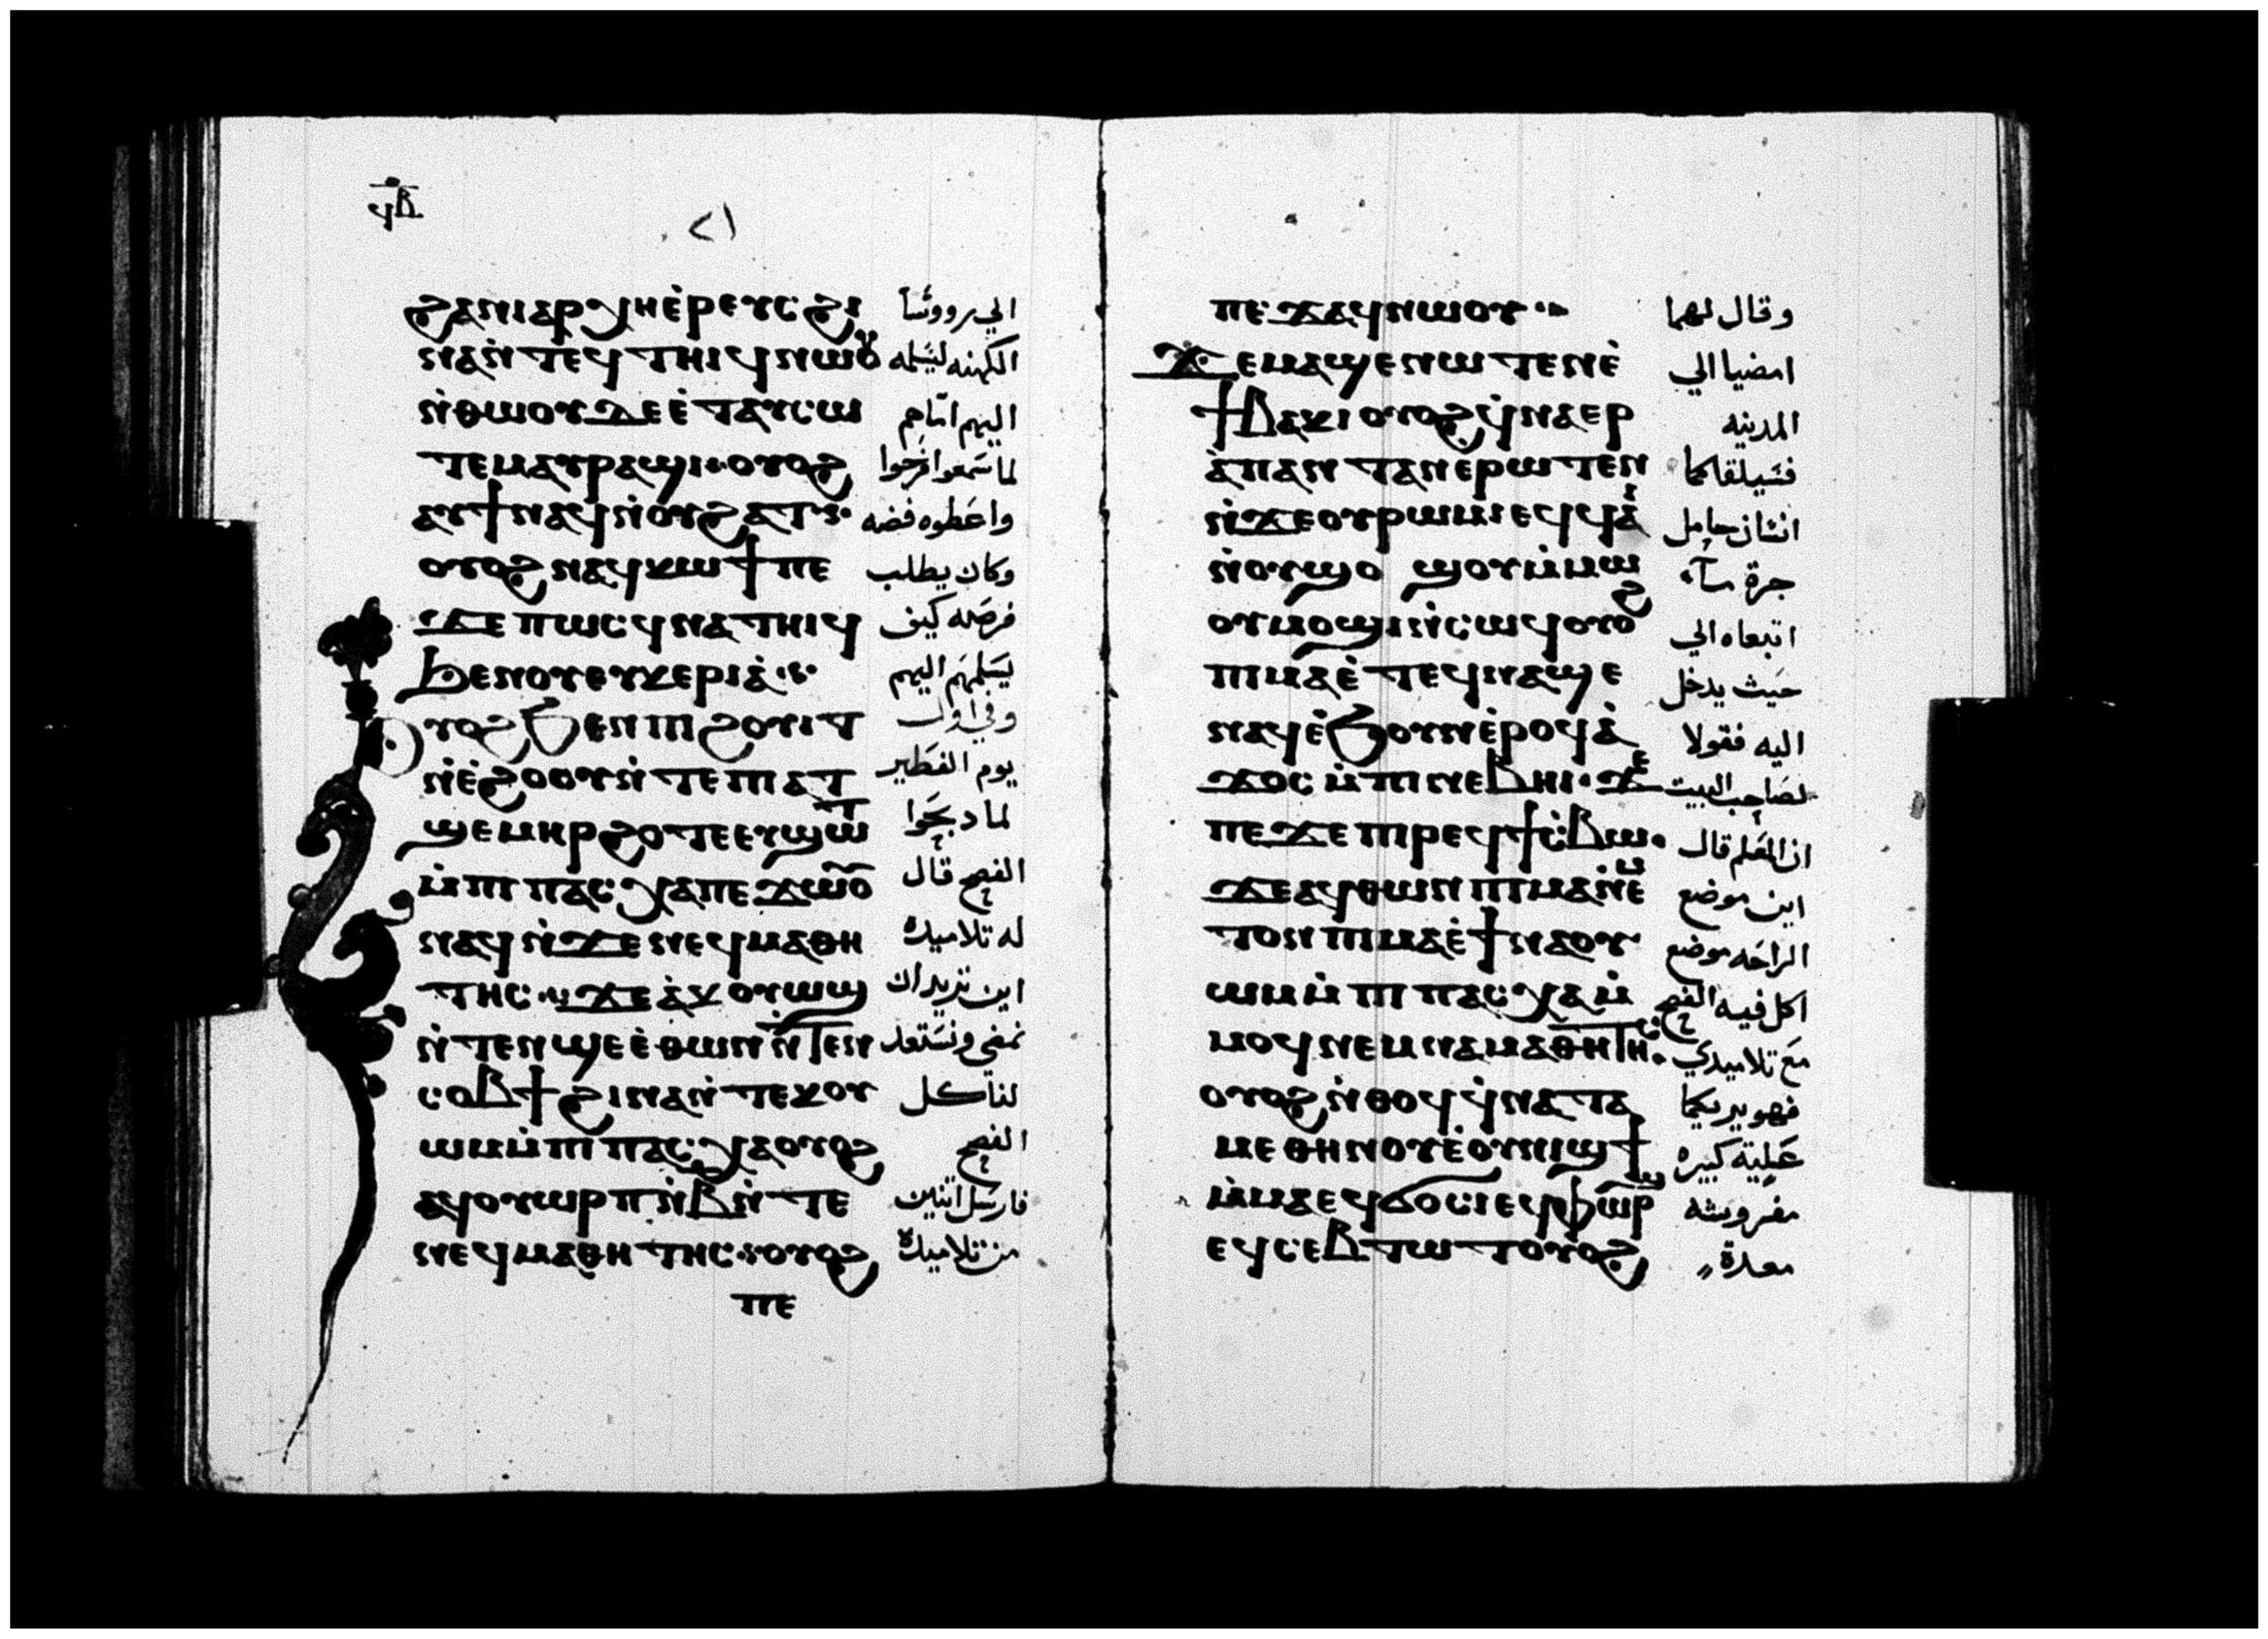 ϥⲃ
ϩⲁⲛⲓⲁⲣⲭⲏⲉ̀ⲣⲉⲩⲥ ϩⲓ
ⲛⲁⲛ̀ⲧⲉϥⲧⲏⲓϥⲛⲱⲟⲩ
ⲛ̀ⲑⲱⲟⲩⲇⲉⲉ̀ⲧⲁⲩⲥⲱ
ⲧⲉⲙⲁⲩⲣⲁϣⲓ·ⲟⲩⲟϩ
ⲁⲩϯⲛⲁϥⲛ̀ⲟⲩϩⲁⲧ·
ⲟⲩⲟϩⲛⲁϥⲕⲱϯⲡⲉ
ϫⲉⲡⲱⲥϥⲛⲁⲧⲏⲓϥ
ϧⲉⲛⲟⲩⲉⲩⲕⲉⲣⲓⲁ̀·
ⲟⲩⲟϩϧⲉⲛⲡⲓϩⲟⲩⲓⲧ
ⲛ̀ⲉ̀ϩⲟⲟⲩⲛ̀ⲧⲉⲡⲓⲁⲧ
ϣⲉⲙⲏⲣϩⲟⲧⲉⲉⲩϣⲱⲧ
ⲙ̀ⲡⲓⲡⲁⲥⲭⲁⲡⲉϫⲱⲟⲩ
ⲛⲁϥⲛ̀ϫⲉⲛⲉϥⲙⲁⲑⲏ
ⲧⲏⲥ·ϫⲉⲁ̀ⲕⲟⲩⲱϣ
ⲛ̀ⲧⲉⲛϣⲉⲉ̀ⲑⲱⲛⲛ̀ⲧⲉⲛ
ⲥⲟⲃϯϩⲓⲛⲁⲛ̀ⲧⲉⲕⲟⲩ
ⲱⲙⲙ̀ⲡⲓⲡⲁⲥⲭⲁⲟⲩⲟϩ
ⲁϥⲟⲩⲱⲣⲡⲛ̀ⲃⲛ̀ⲧⲉ
ⲛⲉϥⲙⲁⲑⲏⲧⲏⲥ·ⲟⲩⲟϩ
ⲡⲉ
الي رووسا
الكهنه ليسلمه
اليهم اما هم
لما سمعوا فرحوا
واعطوه فضه
وكان يطلب
فرصه كيف
يسلمهم اليهم
وفي اول
يوم الفطير
لما دبحوا
الفصح قال
له تلاميده
اين تريد ان
نمضي ونستعد
لناكل
الفصح
فارسل اتنين
من تلاميدة
ⲡⲉϫⲁϥⲛⲱⲟⲩ·
ϫⲉⲙⲁϣⲉⲛⲱⲧⲉⲛⲉ̀
ϯⲃⲁⲕⲓⲟⲩⲟϩϥ̀ⲛⲁⲉⲣ
ⲁ̀ⲡⲁⲛⲧⲁⲛⲉⲣⲱⲧⲉⲛ
ⲛ̀ϫⲉⲟⲩⲣⲱⲙⲓⲉϥϥⲁⲓ
ⲛ̀ⲟⲩϣⲟϣⲟⲩⲙ̀ⲙⲱ
ⲟⲩⲙⲟϣⲓⲛ̀ⲥⲱϥⲟⲩⲟϩ
ⲡⲓⲙⲁⲉ̀ⲧⲉϥⲛⲁϣⲉ
ⲛⲁϥⲉ̀ϧⲟⲩⲛⲉ̀ⲣⲟϥⲁ̀
ϫⲟⲥⲙ̀ⲡⲓⲛⲉⲃⲏⲓ·ϫⲉ
ⲡⲉϫⲉⲡⲓⲣⲉϥϯⲥ̀ⲃⲱ·
ϫⲉⲁϥⲑⲱⲛⲡⲓⲙⲁⲛ̀ⲉⲙ
ⲧⲟⲛⲡⲓⲙⲁⲉ̀ϯⲛⲁⲟⲩ
ⲱⲙⲙ̀ⲡⲓⲡⲁⲥⲭⲁⲙ̀
ⲙⲟϥⲛⲉⲙⲛⲁⲙⲁⲑⲏⲧⲏⲥ·
ⲟⲩⲟϩⲛ̀ⲑⲟϥϥ̀ⲛⲁⲧⲁ
ⲙⲉⲑⲏⲛⲟⲩⲉ̀ⲟⲩⲛⲓϣϯ
ⲙ̀ⲙⲁⲉϥϭⲟⲥⲓⲉϥⲫⲱⲣϣ
ⲉϥⲥⲉⲃⲧⲱⲧⲟⲩⲟϩ
وقال لهما
امضيا الي
المدينه
فسيلقاكما
انسان حامل
جرة ماء
اتبعاه الي
حيث يدخل
اليه فقولا
لصاحب البيت
ان المعلم قال
اين موضع
الراحه موضع
اكل فيه الفصح
مع تلاميدي
فهو يريكما
علية كبيره
مفروشه
معدة